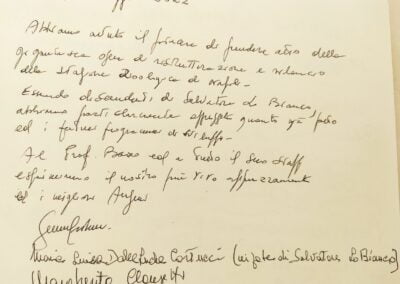 Abbiamo avuto il piacere di prendere atto della
gigantesca opera di ristrutturazione e rilancio
della Stazione Zoologica di Napoli.
Essendo discendenti di Salvatore Lo Bianco,
abbiamo particolarmente apprezzato quanto già fatto
ed i futuri programmi di sviluppo.
Al Prof. ed a tutto il suo Staff
esprimiamo il nostro più vivo apprezzamento
ed i migliori Auguri
Maria Luisa Cortucci (nipote di Salvatore Lo Bianco)
Margherita